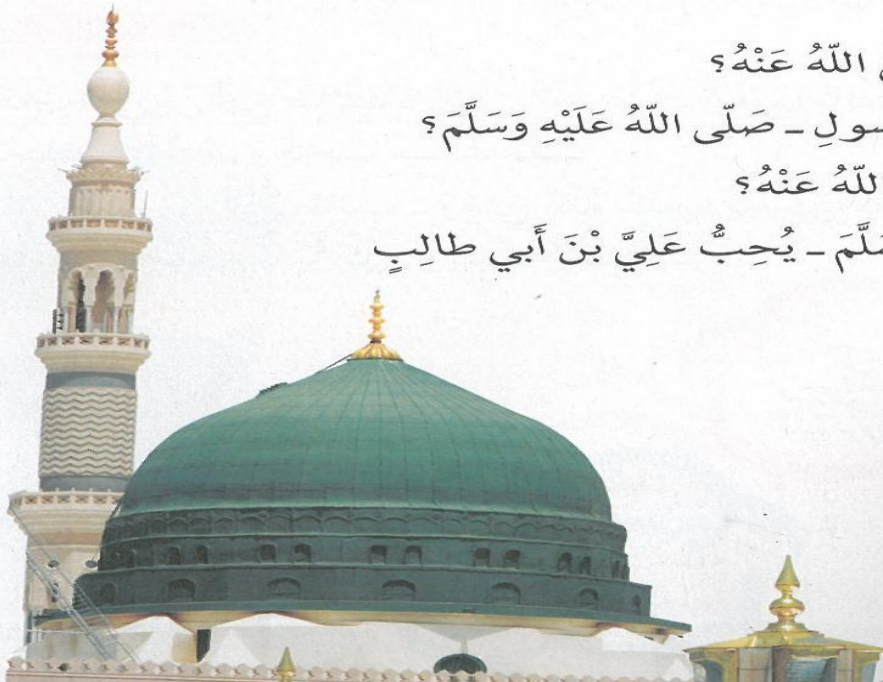 اللّهُ عَنْهُ؟
ـ صَلّى اللّهُ عَلَيْهِ وَسَلَّمَ؟
اللّهُ عَنْهُ؟
ـ يُحِبُّ عَلِيَّ بْنَ أَبي طالِبٍ